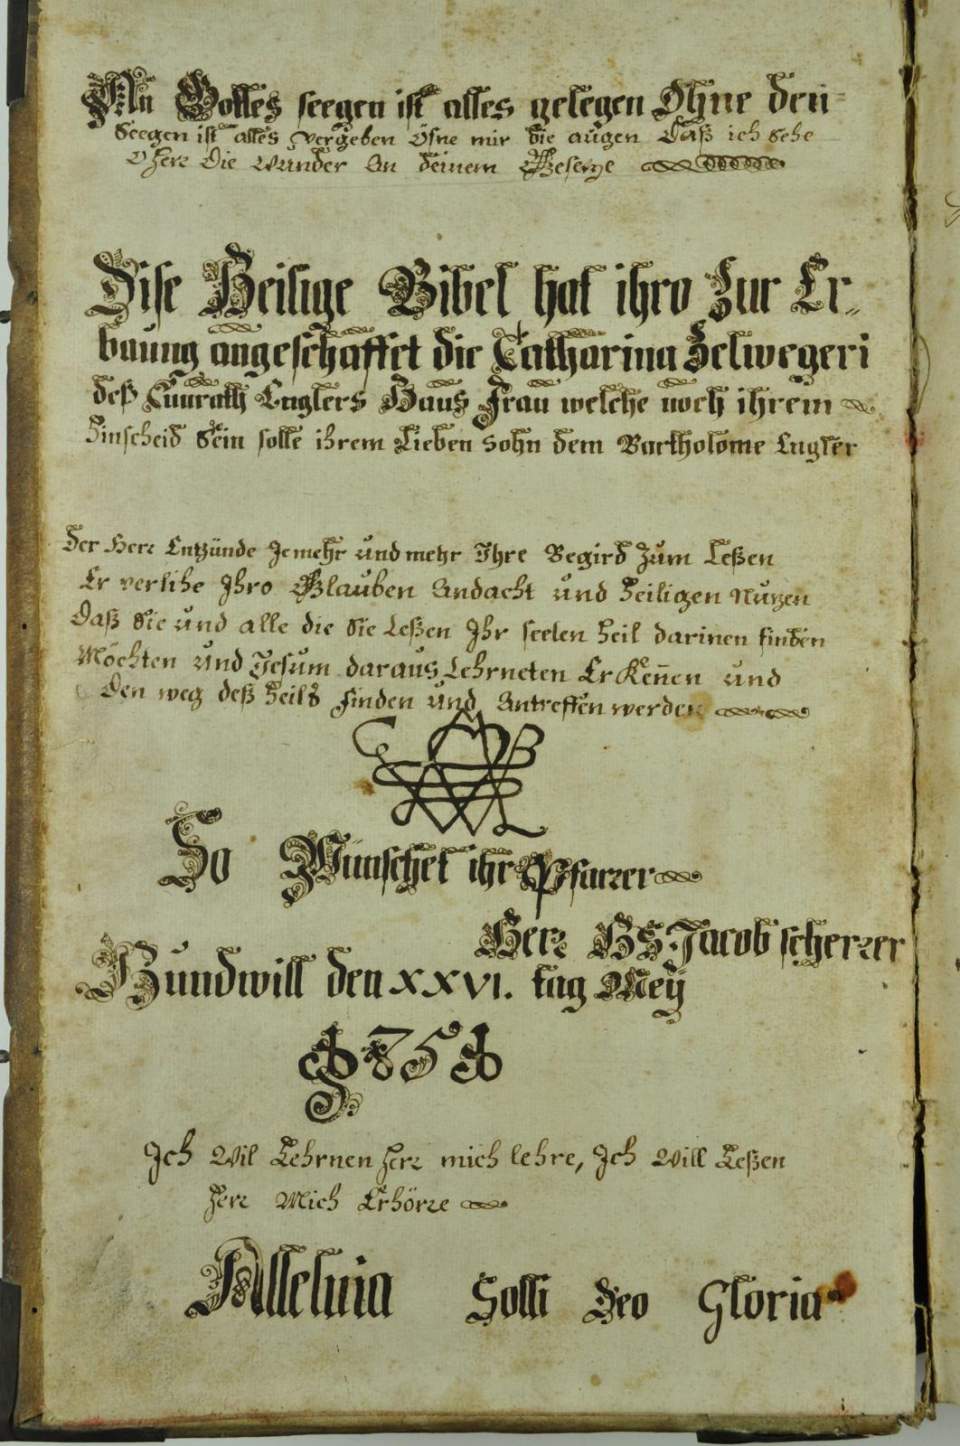 An Gottes seegen ist alles gelegen Ohne den
Seegen ist alles vergeben Öfne mir die augen Daß ich sehe
O herr Die wunder An deinem Gesetze
Dise Heilige Bibel hat ihro Zur Er¬
bauung angeschaffet die Catharina Zelwegeri
deß Cunrath Englers Hauß Frau welche noch ihrem
Hinscheid Sein solle ihrem Lieben Sohn dem Bartholome Engler
Der Herr Entzünde Je mehr und mehr Ihre Begird Zum Leßen
Er verlihe Ihro Glauben Andacht und Heiligen Nutzen
Daß Sie und alle die Sie Leßen Ihr seelen heil darinen finden
Möchten und Jesum daraus Lehrneten Er Keñen und
Den weg deß Heilß finden und Antreffen werden
So Wünschet ihr Pfarrer
Herr HS. Jacob scherrer
Hundwill den XXVI. tag Meÿ
Ich Wil Lehrnen herr mich lehre, Ich Will Leßen
herr Mich Erhörre
Alleluia Solli Deo Gloria